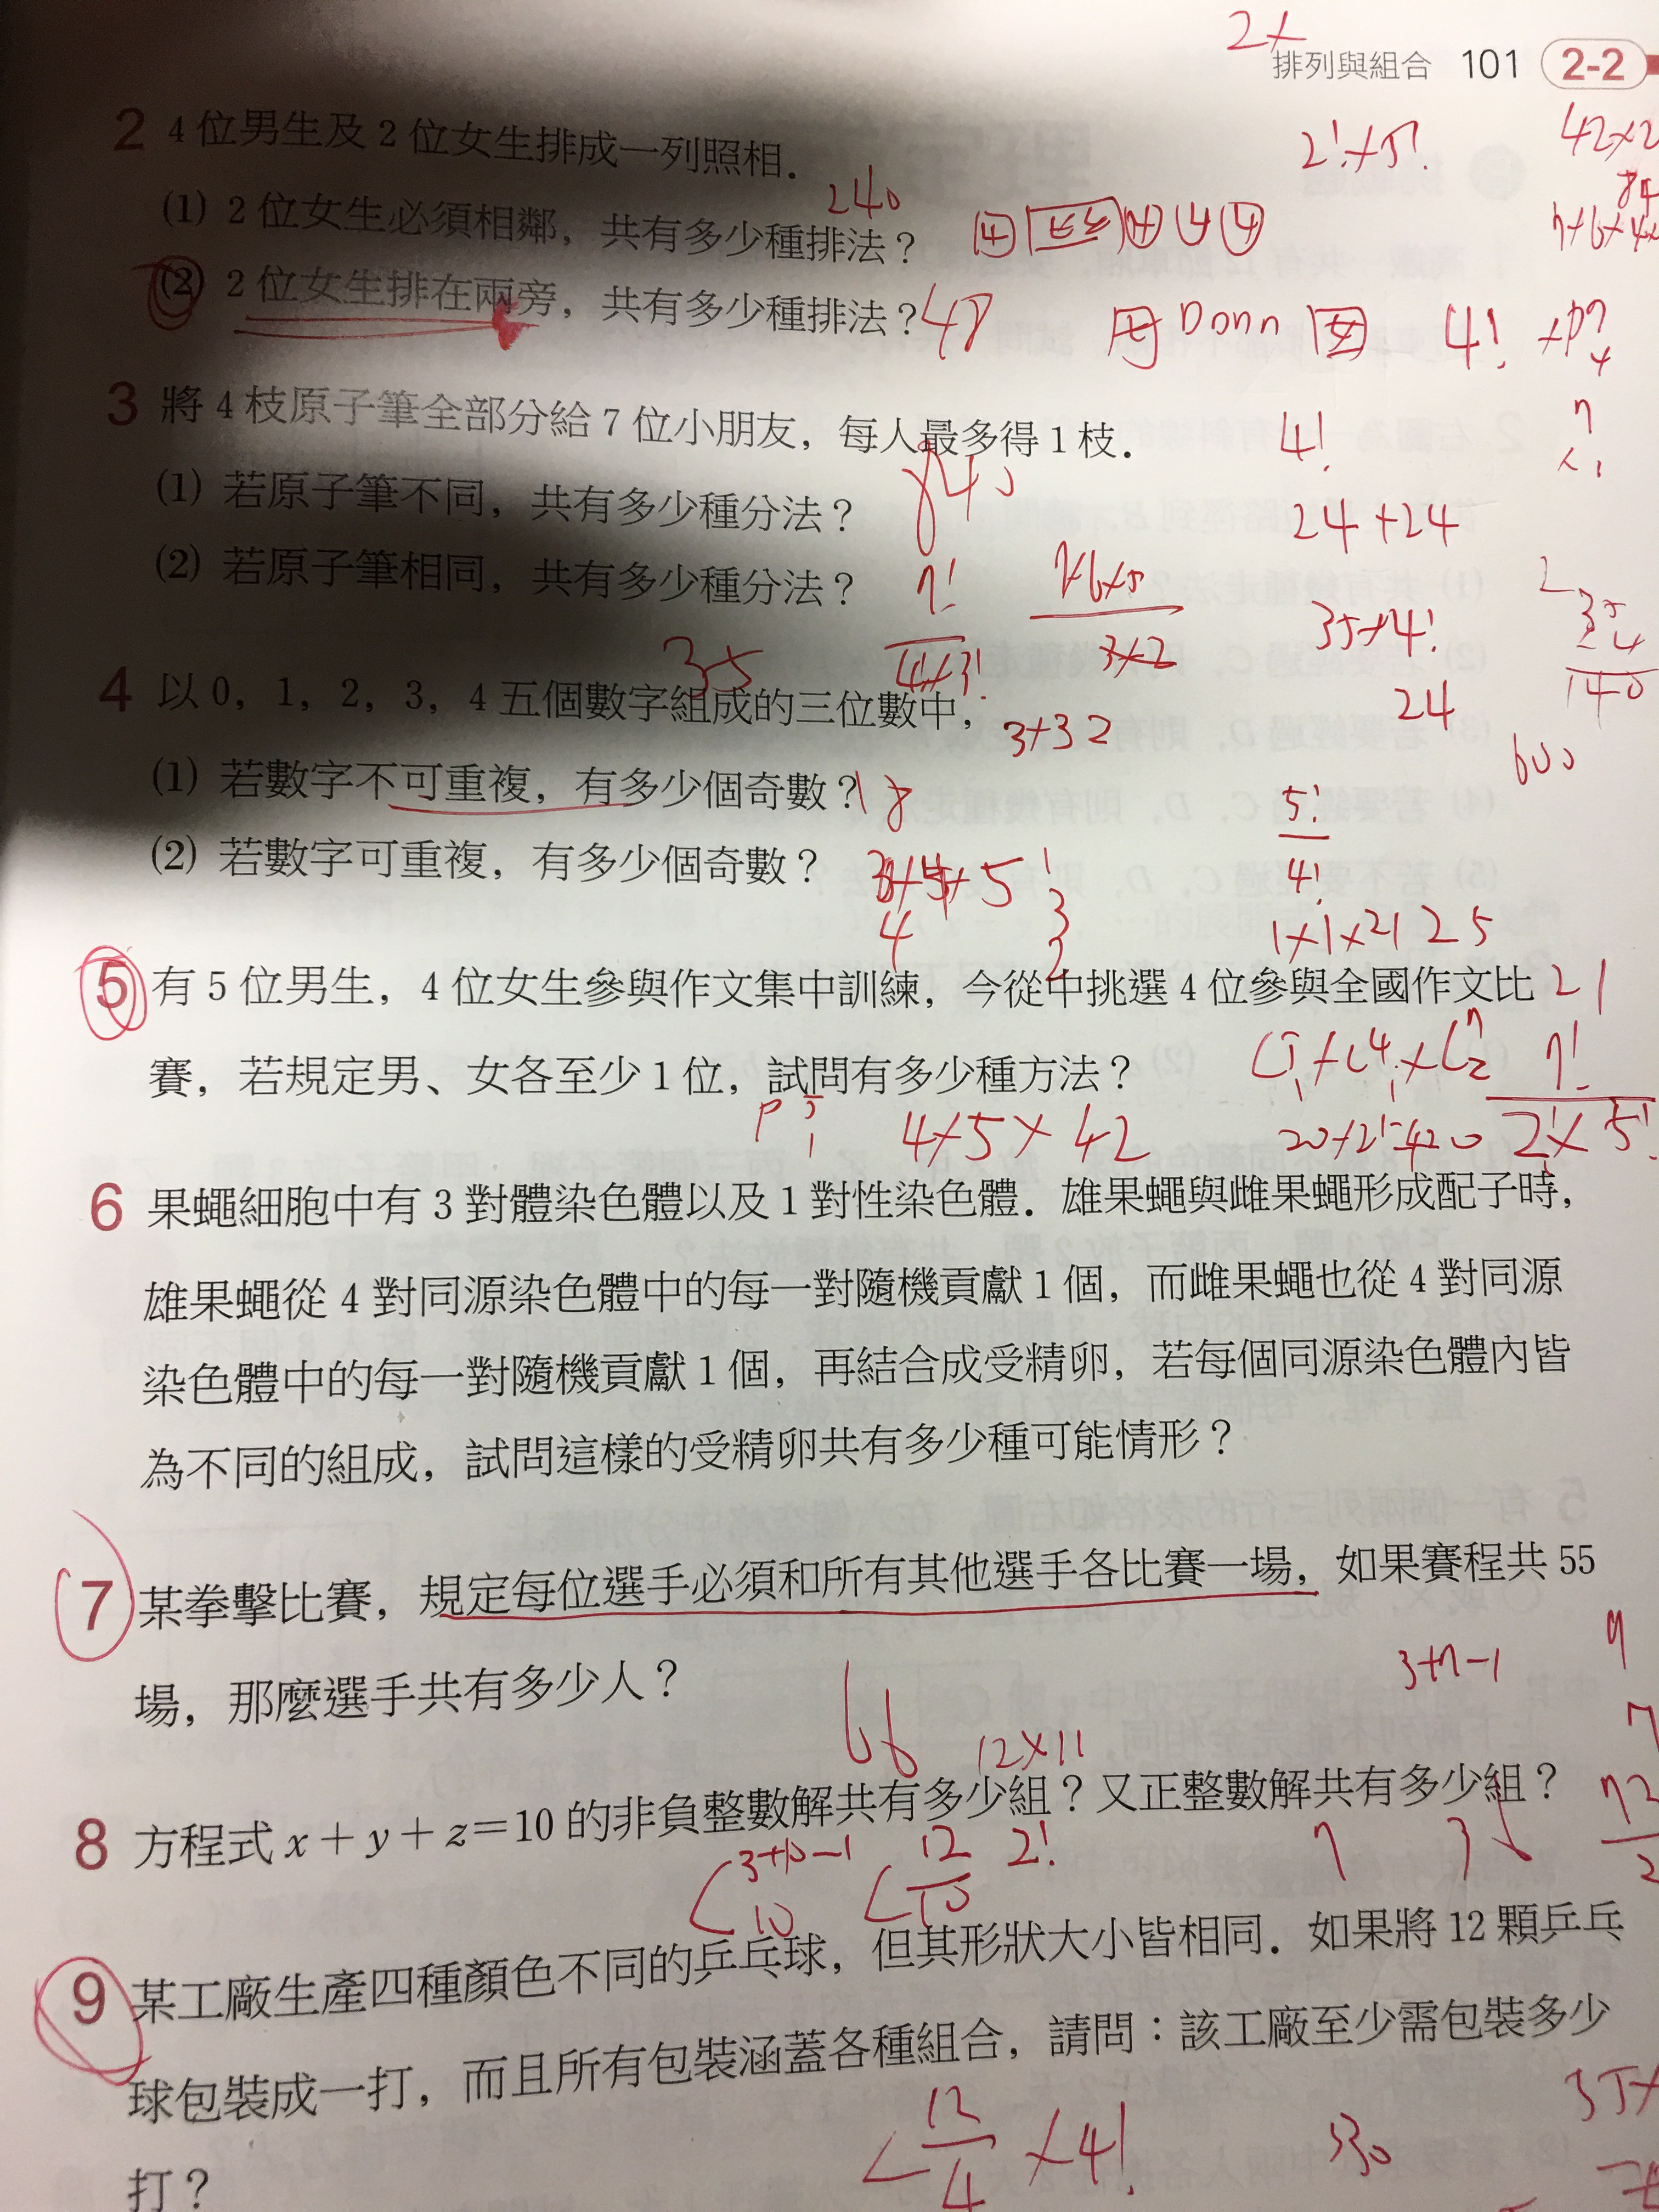 2+
排列與組合 101 2-2
2 4位男生及2位女生排成一列照相．
2!×5!
42×2
84
(1) 2位女生必須相鄰，共有多少種排法？
240
(2) 2位女生排在兩旁，共有多少種排法？
48
4!
3 將4枝原子筆全部分給7位小朋友，每人最多得1枝．
4!
(1) 若原子筆不同，共有多少種分法？
840
24+24
(2) 若原子筆相同，共有多少種分法？
35
7!
4!×3!
7×6×5
3×2
35×4!
35
4
140
24
600
4 以0，1，2，3，4五個數字組成的三位數中，
3×3 2
(1) 若數字不可重複，有多少個奇數？
18
5!
4!
(2) 若數字可重複，有多少個奇數？
1×1×21 25
5 有5位男生，4位女生參與作文集中訓練，今從中挑選4位參與全國作文比
21
賽，若規定男、女各至少1位，試問有多少種方法？
4×5×42
20×21=420
7!
2!×5!
6 果蠅細胞中有3對體染色體以及1對性染色體．雄果蠅與雌果蠅形成配子時，
雄果蠅從4對同源染色體中的每一對隨機貢獻1個，而雌果蠅也從4對同源
染色體中的每一對隨機貢獻1個，再結合成受精卵，若每個同源染色體內皆
為不同的組成，試問這樣的受精卵共有多少種可能情形？
7 某拳擊比賽，規定每位選手必須和所有其他選手各比賽一場，如果賽程共55
場，那麼選手共有多少人？
3+7-1
66
12×11
8 方程式x+y+z=10的非負整數解共有多少組？又正整數解共有多少組？
C 3+10-1
10
C 12
10
2!
72
2
9 某工廠生產四種顏色不同的乒乓球，但其形狀大小皆相同．如果將12顆乒乓
球包裝成一打，而且所有包裝涵蓋各種組合，請問：該工廠至少需包裝多少
打？
C 12
4
×4!
330